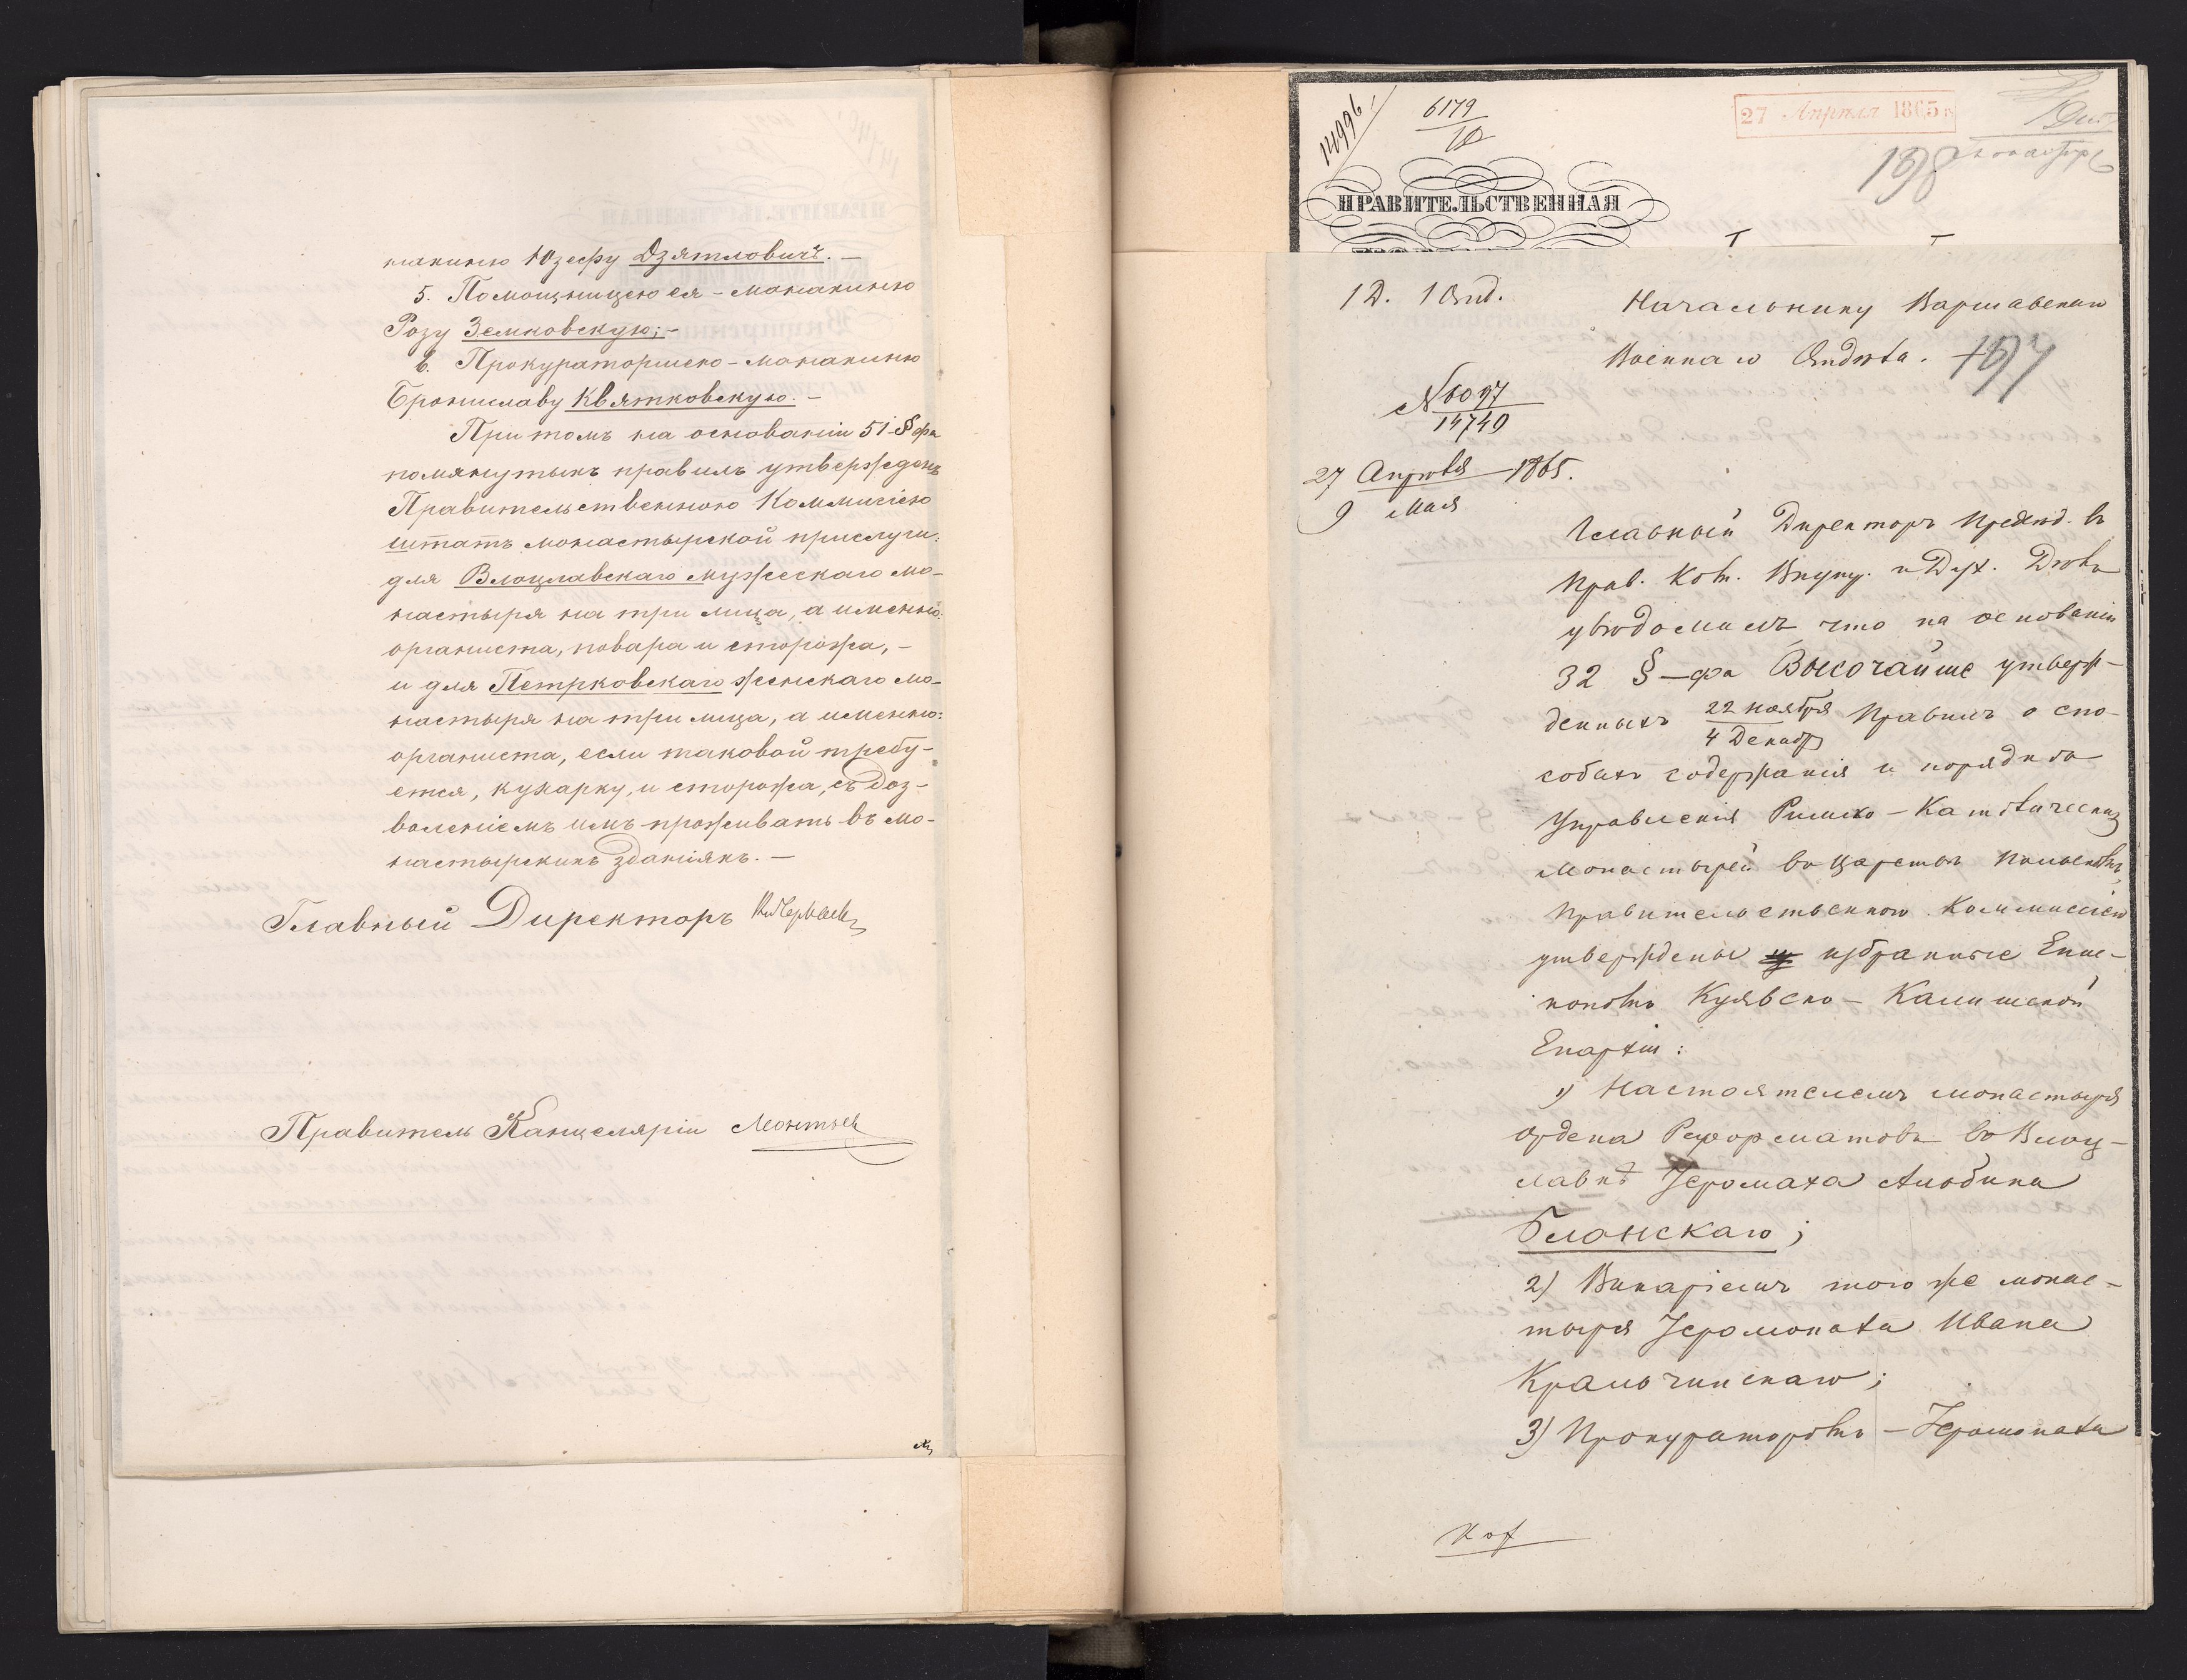 нахиню Юзефу Дзятловичъ. —
5. Помощницею ея - монахиню
Розу Земковскую; -
6. Прокураторшею - монахиню
Брониславу Квятковскую. -
При томъ на основаніи 51 § фа
помянутыхъ правилъ утвержденъ
Правительственною Коммисіею
штатъ монастырской прислуги:
для Влоцлавскаго мужескаго мо-
настыря на три лица, а именно:
органиста, повара и сторожа, -
и для Петрковскаго женскаго мо-
настыря на три лица, а именно:
органиста, если таковой требу-
ется, кухарку, и сторожа, съ доз-
воленіемъ имъ проживать въ мо-
настырскихъ зданіяхъ. —
Главный Директоръ
Правитель Канцеляріи
14996
6179
27 Апрѣля 1865
198
ПРАВИТЕЛЬСТВЕННАЯ
1 Д. 1 Отд.
Начальнику Варшавскаго
Военнаго Отдѣла. 197
№ 6097
14749
27 Апрѣля 1865.
9 Мая
Главный Директоръ Предсѣд. въ
Прав. Ком. Внутр. и Дух. Дѣлъ
увѣдомилъ что на основаніи
32 §-фа Высочайше утверж-
денныхъ 22 Ноября Правилъ о спо-
4 Декабр
собахъ содержанія и порядкѣ
Управленія Римско-Католическихъ
Монастырей въ Царствѣ Польскомъ,
Правительственною Коммиссіею
утверждены избранные Епис-
копомъ Куявско-Калишской
Епархіи:
1) Настоятелемъ монастыря
ордена Реформатовъ въ Влоц-
лавкѣ Іеромонаха Альбина
Блонскаго;
2) Викаріемъ того же монас-
тыря Іеромонаха Ивана
Кральчинскаго;
3) Прокураторомъ - Іеромонаха